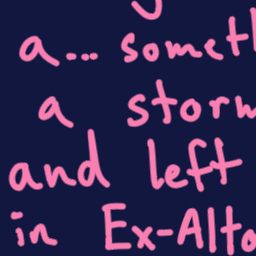 a... someth
a storm
and left
in Ex-Alto